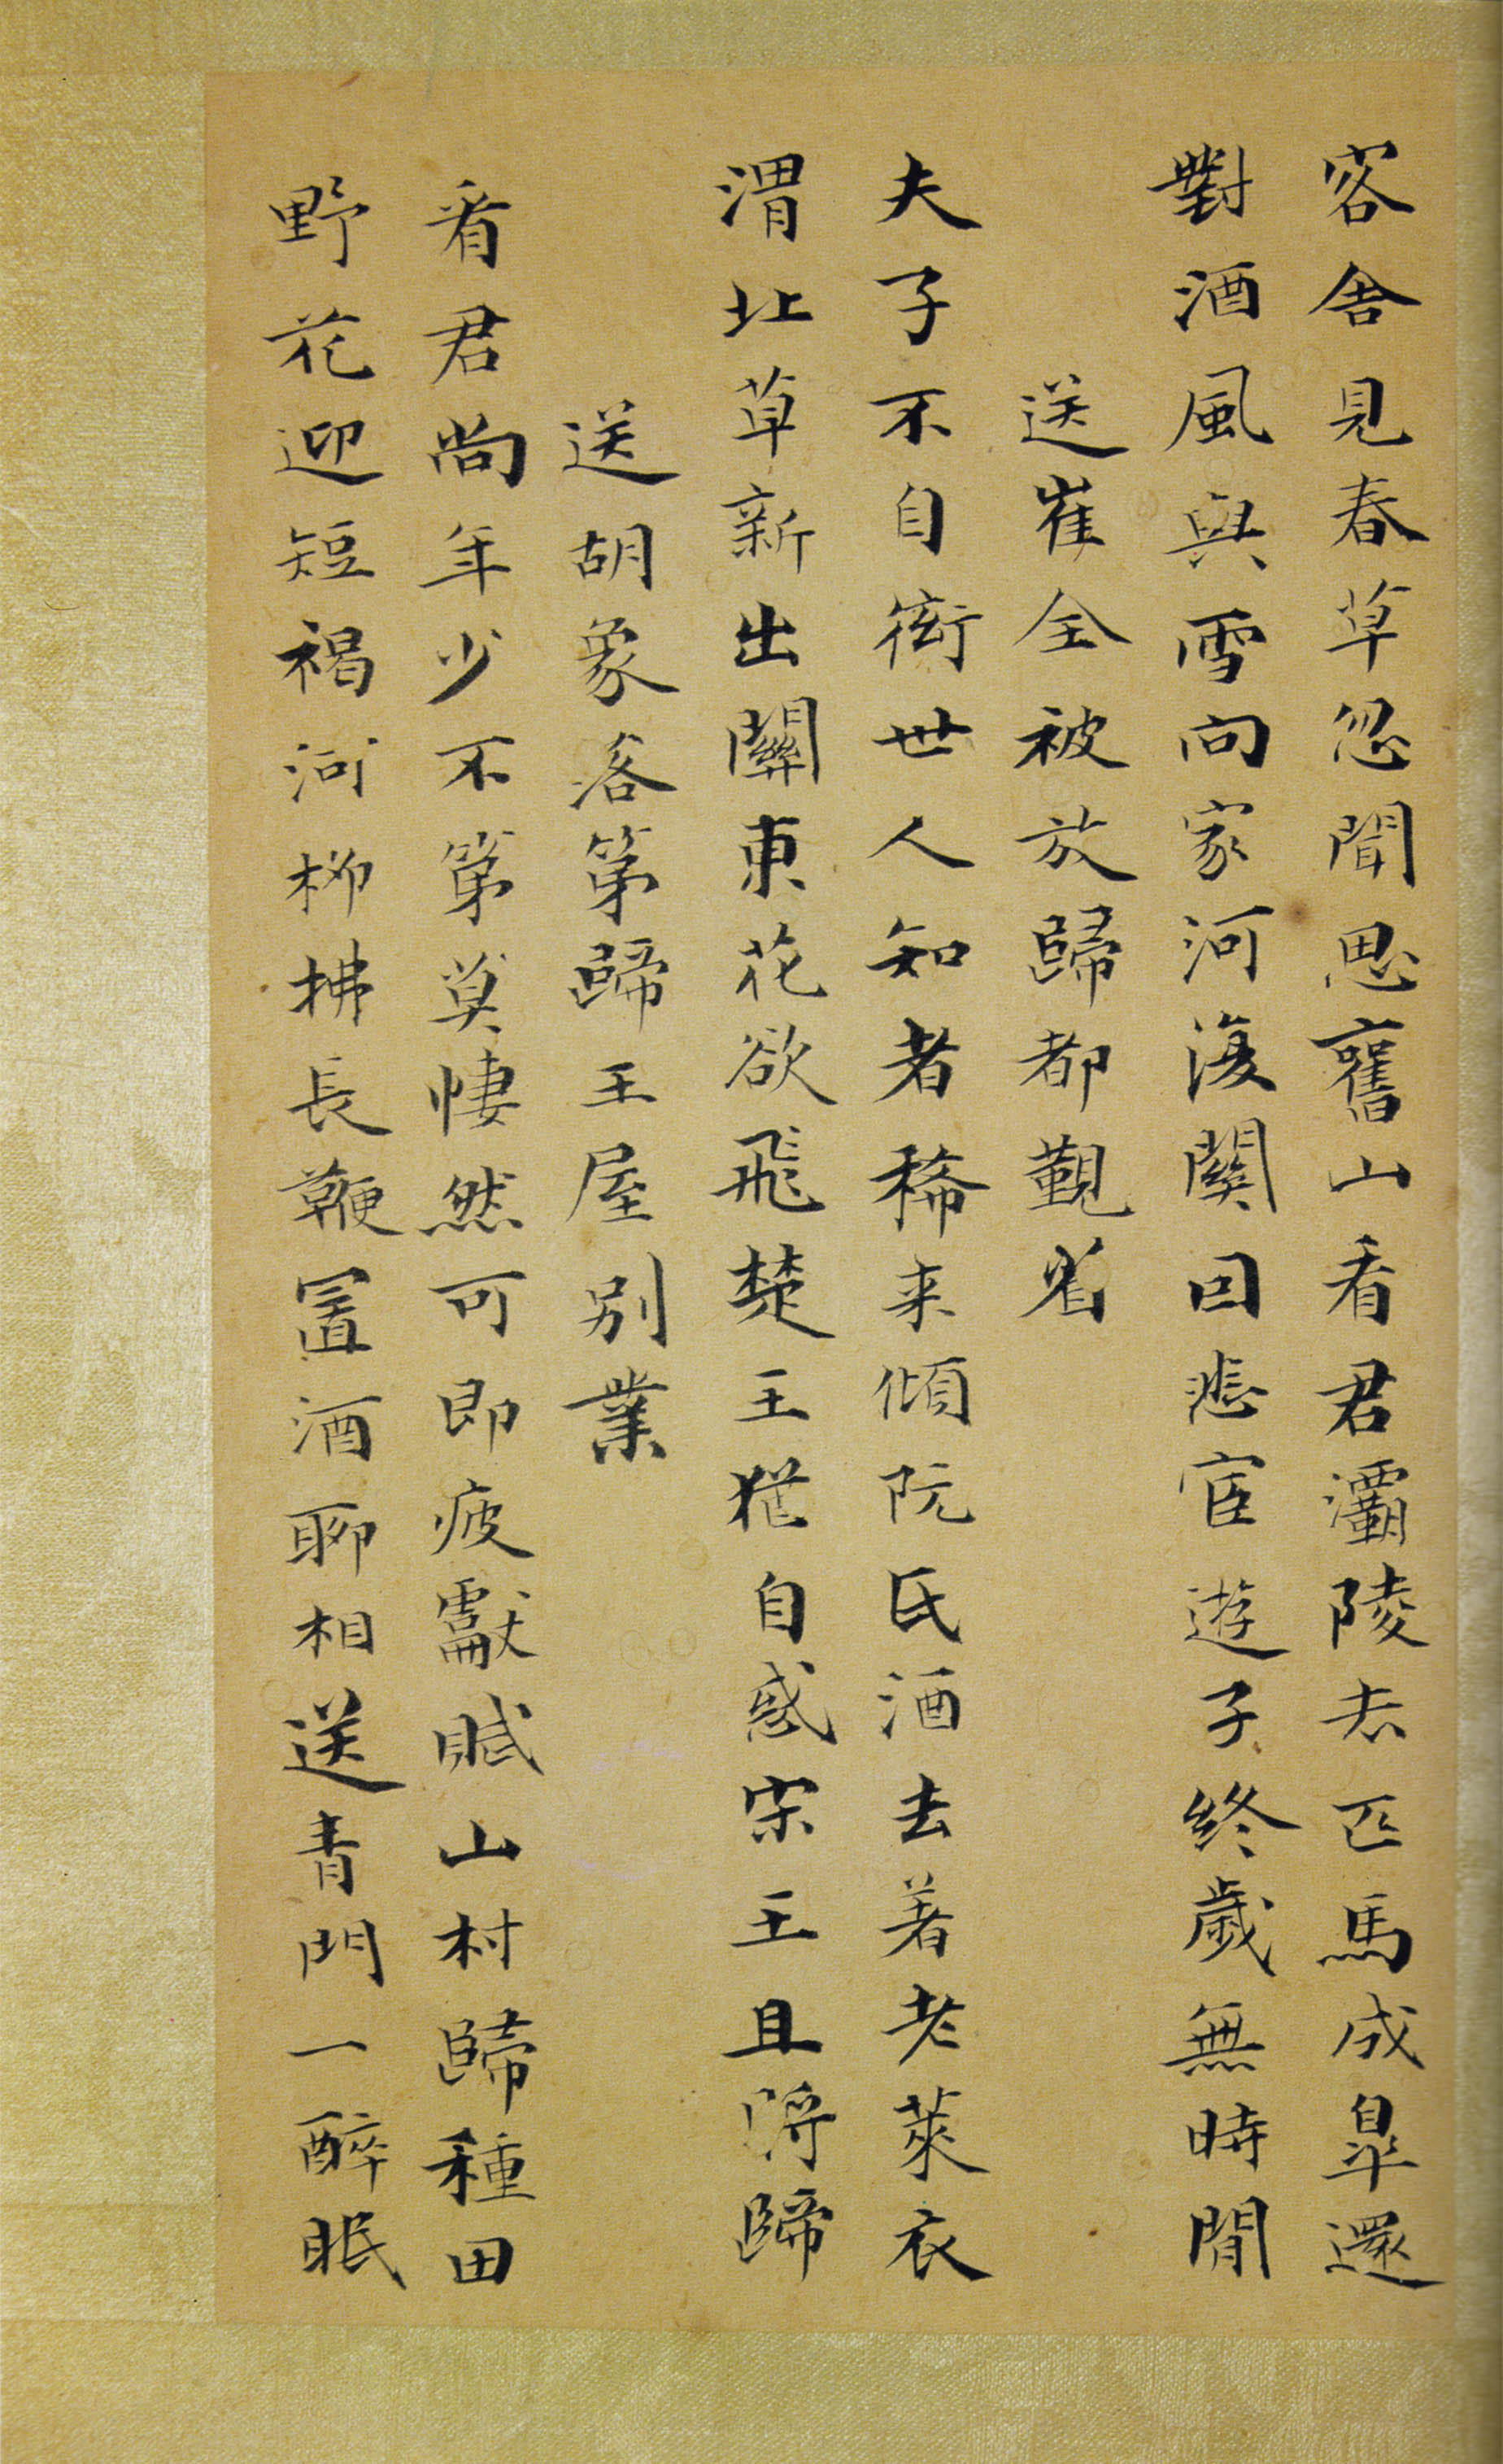 客舍見春草忽聞思舊山看君灞陵去匹馬成皋還
對酒風與雪向家河復關回悲宦遊子終歲無時閒
送崔全被放歸都觀省
夫子不自衒世人知者稀来傾阮氏酒去著老萊衣
渭北草新出關東花欲飛楚王猶自惑宋玉且將歸
送胡象落第歸王屋別業
看君尚年少不第莫悽然可即疲獻賦山村歸種田
野花迎短褐河柳拂長鞭置酒聊相送青門一醉眠